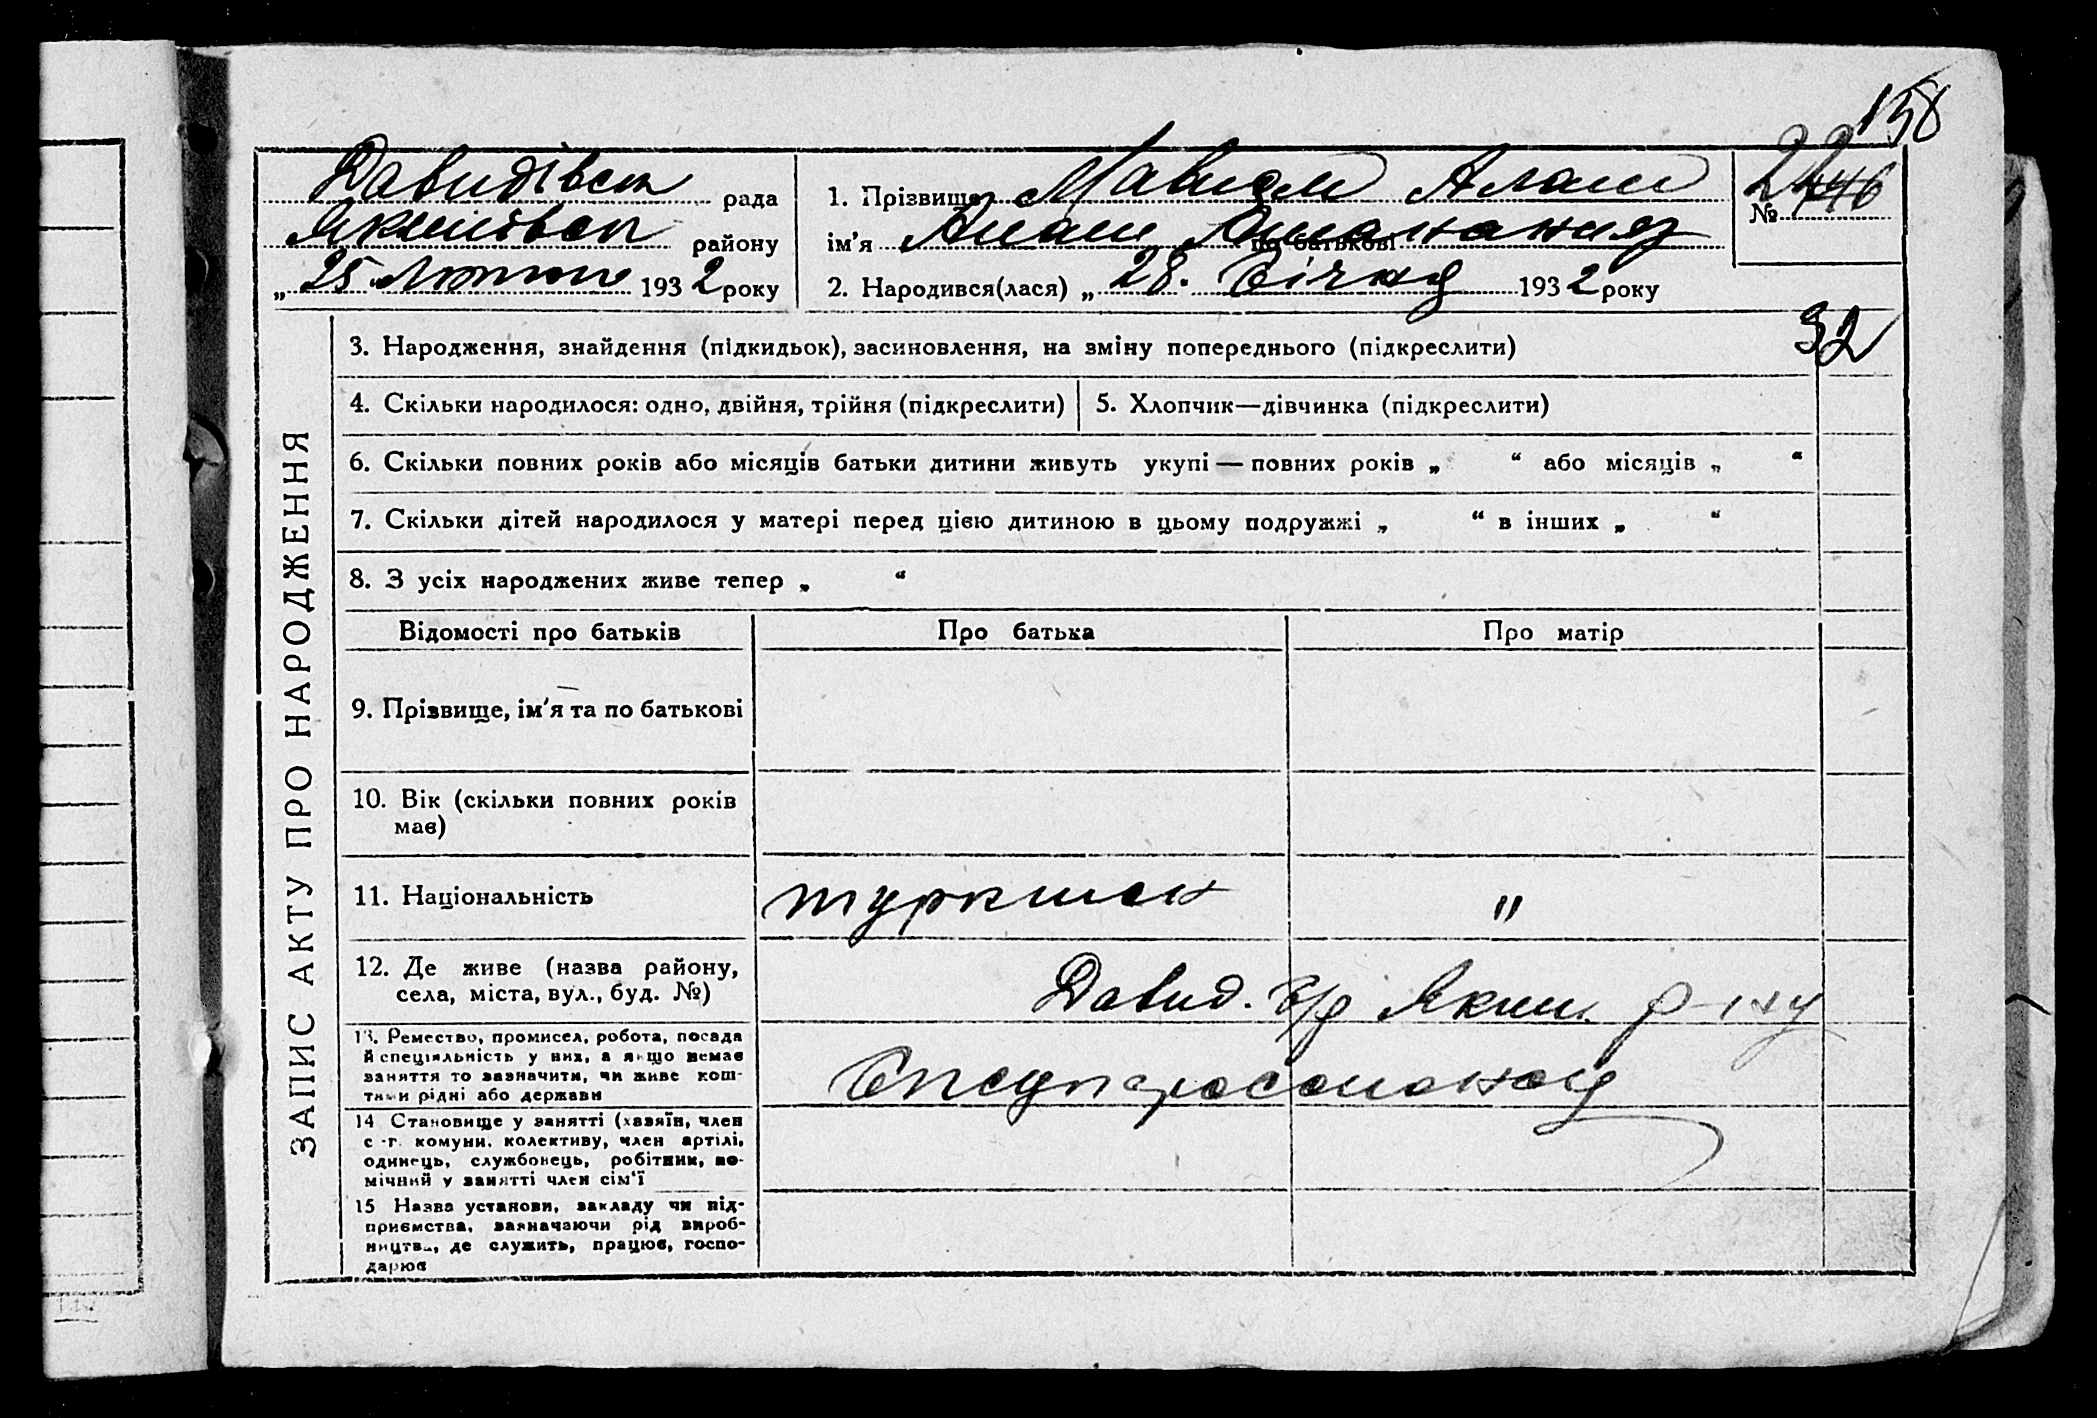 158
Давидівск рада
Якимівськ району
„ 25 " Лютого 1932 року
1. Прізвище Алаш
ім'я по батькові
2. Народився(лася) „ 28. Січня 1932 року
№ 22 446
32
ЗАПИС АКТУ ПРО НАРОДЖЕННЯ
3. Народження, знайдення (підкидьок), засиновлення, на зміну попереднього (підкреслити)
4. Скільки народилося: одно, двійня, трійня (підкреслити)
5. Хлопчик—дівчинка (підкреслити)
6. Скільки повних років або місяців батьки дитини живуть укупі — повних років „ “ або місяців „ “
7. Скільки дітей народилося у матері перед цією дитиною в цьому подружжі „ “ в інших „ “
8. З усіх народжених живе тепер „ “
Відомості про батьків Про батька Про матір
9. Прізвище, ім'я та по батькові
10. Вік (скільки повних років
має)
11. Національність "
12. Де живе (назва району,
села, міста, вул., буд. №)
Давид. с/р Яким. р-ну
13. Ремество, промисел, робота, посада
й спеціяльність у них, а якщо немає
заняття то зазначити, чи живе кош-
тами рідні або держави
14 Становище у занятті (хазяїн, член
с.-г. комуни, колективу, член артілі,
одинець, службовець, робітник, по-
мічний у занятті член сім'ї
15 Назва установи, закладу чи під-
приємства, зазначаючи рід вироб-
ництва, де служить, працює, госпо-
дарює